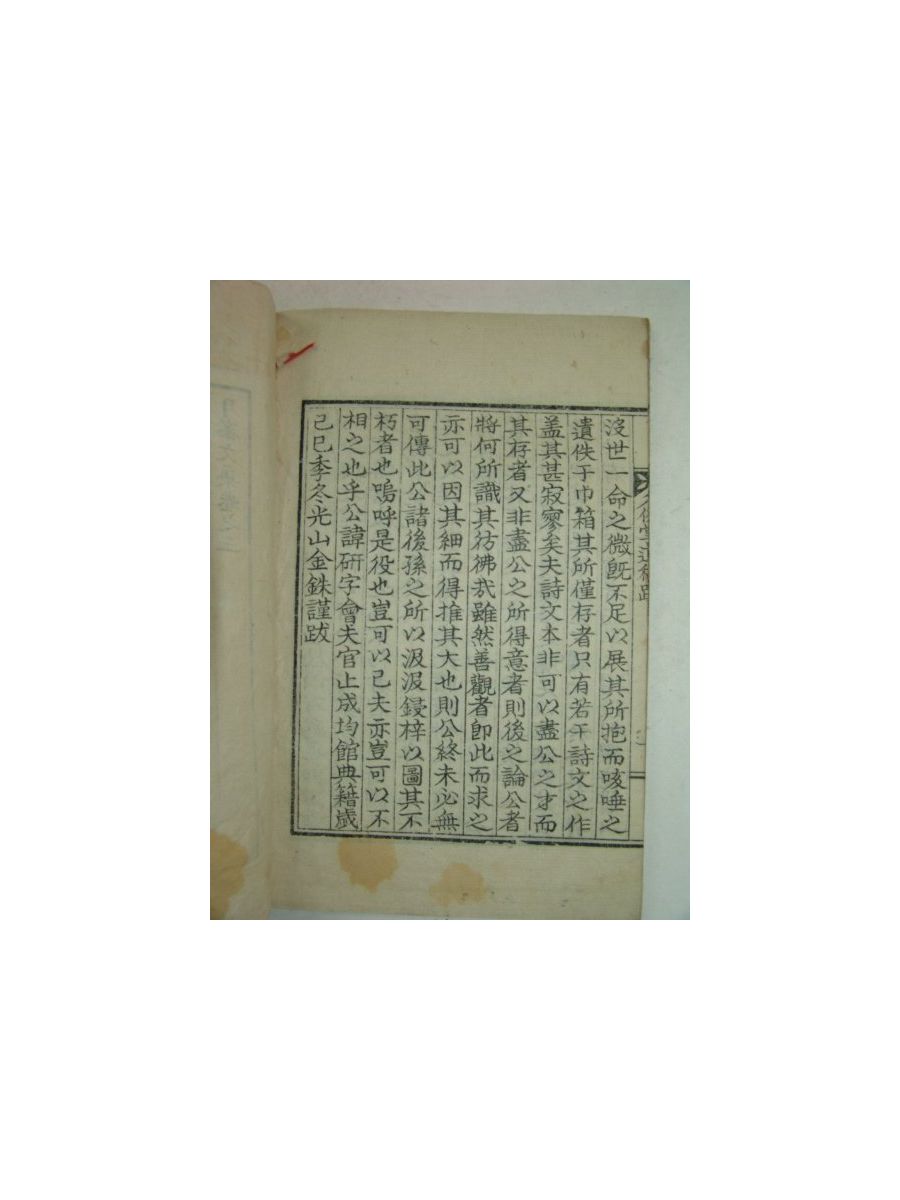 沒世一命之微旣不足以展其所抱而咳唾之
遺佚于巾箱其所僅存者只有若干詩文之作
盖其甚寂寥矣夫詩文本非可以盡公之才而
其存者又非盡公之所得意者則後之論公者
將何所識其彷彿㢤雖然善觀者卽此而求之
亦可以因其細而得推其大也則公終未必無
可傳此公諸後孫之所以汲汲鋟梓以圖其不
朽者也嗚呼是役也豈可以已夫亦豈可以不
相之也乎公諱硏字會夫官止成均館典籍歲
己巳季冬光山金銖謹跋